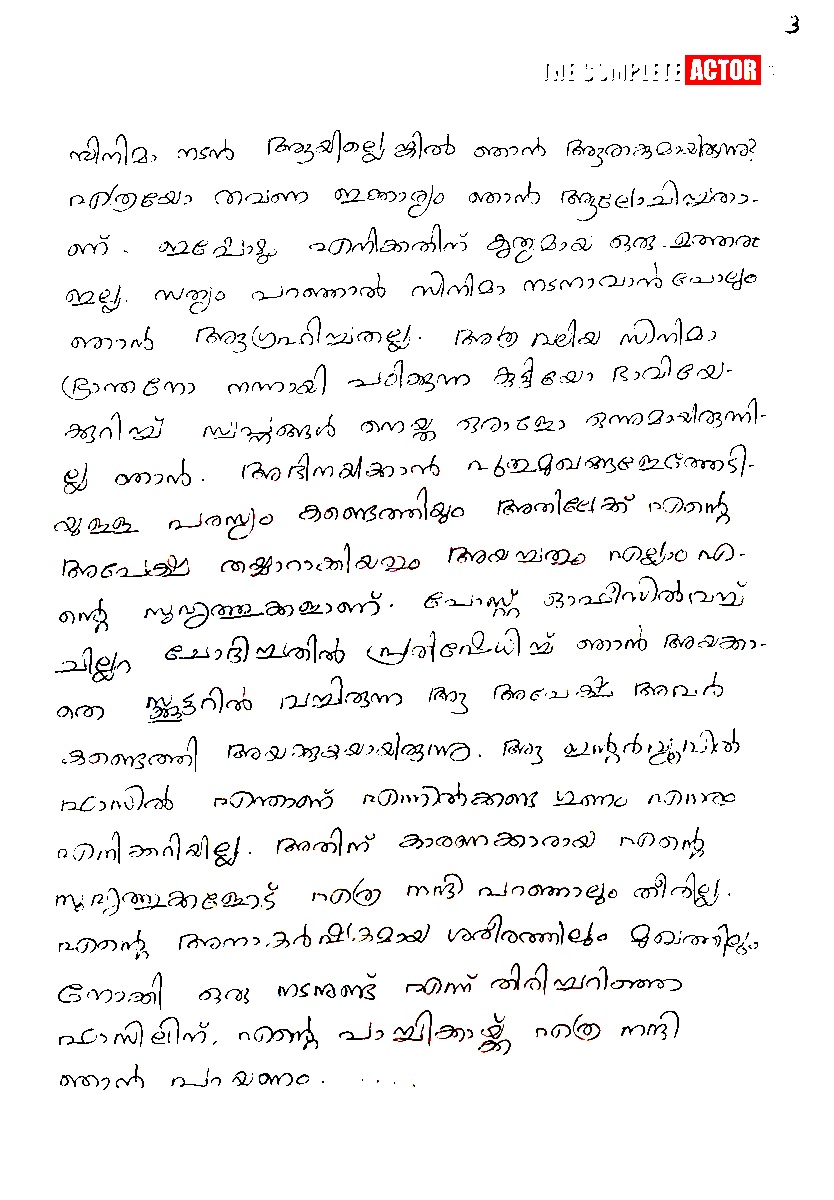 3
THE COMPLETE ACTOR
സിനിമാ നടൻ ആയില്ലെങ്കിൽ ഞാൻ ആരാകുമായിരുന്നു?
എത്രയോ തവണ ഇക്കാര്യം ഞാൻ ആലോചിച്ചതാ-
ണ്. ഇപ്പോഴും എനിക്കതിന് കൃത്യമായ ഒരു ഉത്തരം
ഇല്ല. സത്യം പറഞ്ഞാൽ സിനിമാ നടനാവാൻ പോലും
ഞാൻ ആഗ്രഹിച്ചതല്ല. അത്ര വലിയ സിനിമാ
ഭ്രാന്തനോ നന്നായി പഠിക്കുന്ന കുട്ടിയോ ഭാവിയെ-
ക്കുറിച്ച് സ്വപ്നങ്ങൾ നെയ്ത ഒരാളോ ഒന്നുമായിരുന്നി-
ല്ല ഞാൻ. അഭിനയിക്കാൻ പുതുമുഖങ്ങളെത്തേടി-
യുള്ള പരസ്യം കണ്ടെത്തിയതും അതിലേക്ക് എന്റെ
അപേക്ഷ തയ്യാറാക്കിയതും അയച്ചതും എല്ലാം എ-
ന്റെ സുഹൃത്തുക്കളാണ്. പോസ്റ്റ് ഓഫീസിൽ വച്ച്
ചില്ലറ ചോദിച്ചതിൽ പ്രതിഷേധിച്ച് ഞാൻ അയക്കാ-
തെ സ്കൂട്ടറിൽ വച്ചിരുന്ന ആ അപേക്ഷ അവർ
കണ്ടെത്തി അയക്കുകയായിരുന്നു. ആ ഇന്റർവ്യൂവിൽ
ഫാസിൽ എന്താണ് എന്നിൽക്കണ്ട ഗുണം എന്നും
എനിക്കറിയില്ല. അതിന് കാരണക്കാരായ എന്റെ
സുഹൃത്തുക്കളോട് എത്ര നന്ദി പറഞ്ഞാലും തീരില്ല.
എന്റെ അനാകർഷകമായ ശരീരത്തിലും മുഖത്തിലും
നോക്കി ഒരു നടനുണ്ട് എന്ന് തിരിച്ചറിഞ്ഞ
ഫാസിലിന്, എന്റെ പാച്ചിക്കായ്ക്ക് എത്ര നന്ദി
ഞാൻ പറയണം. ....